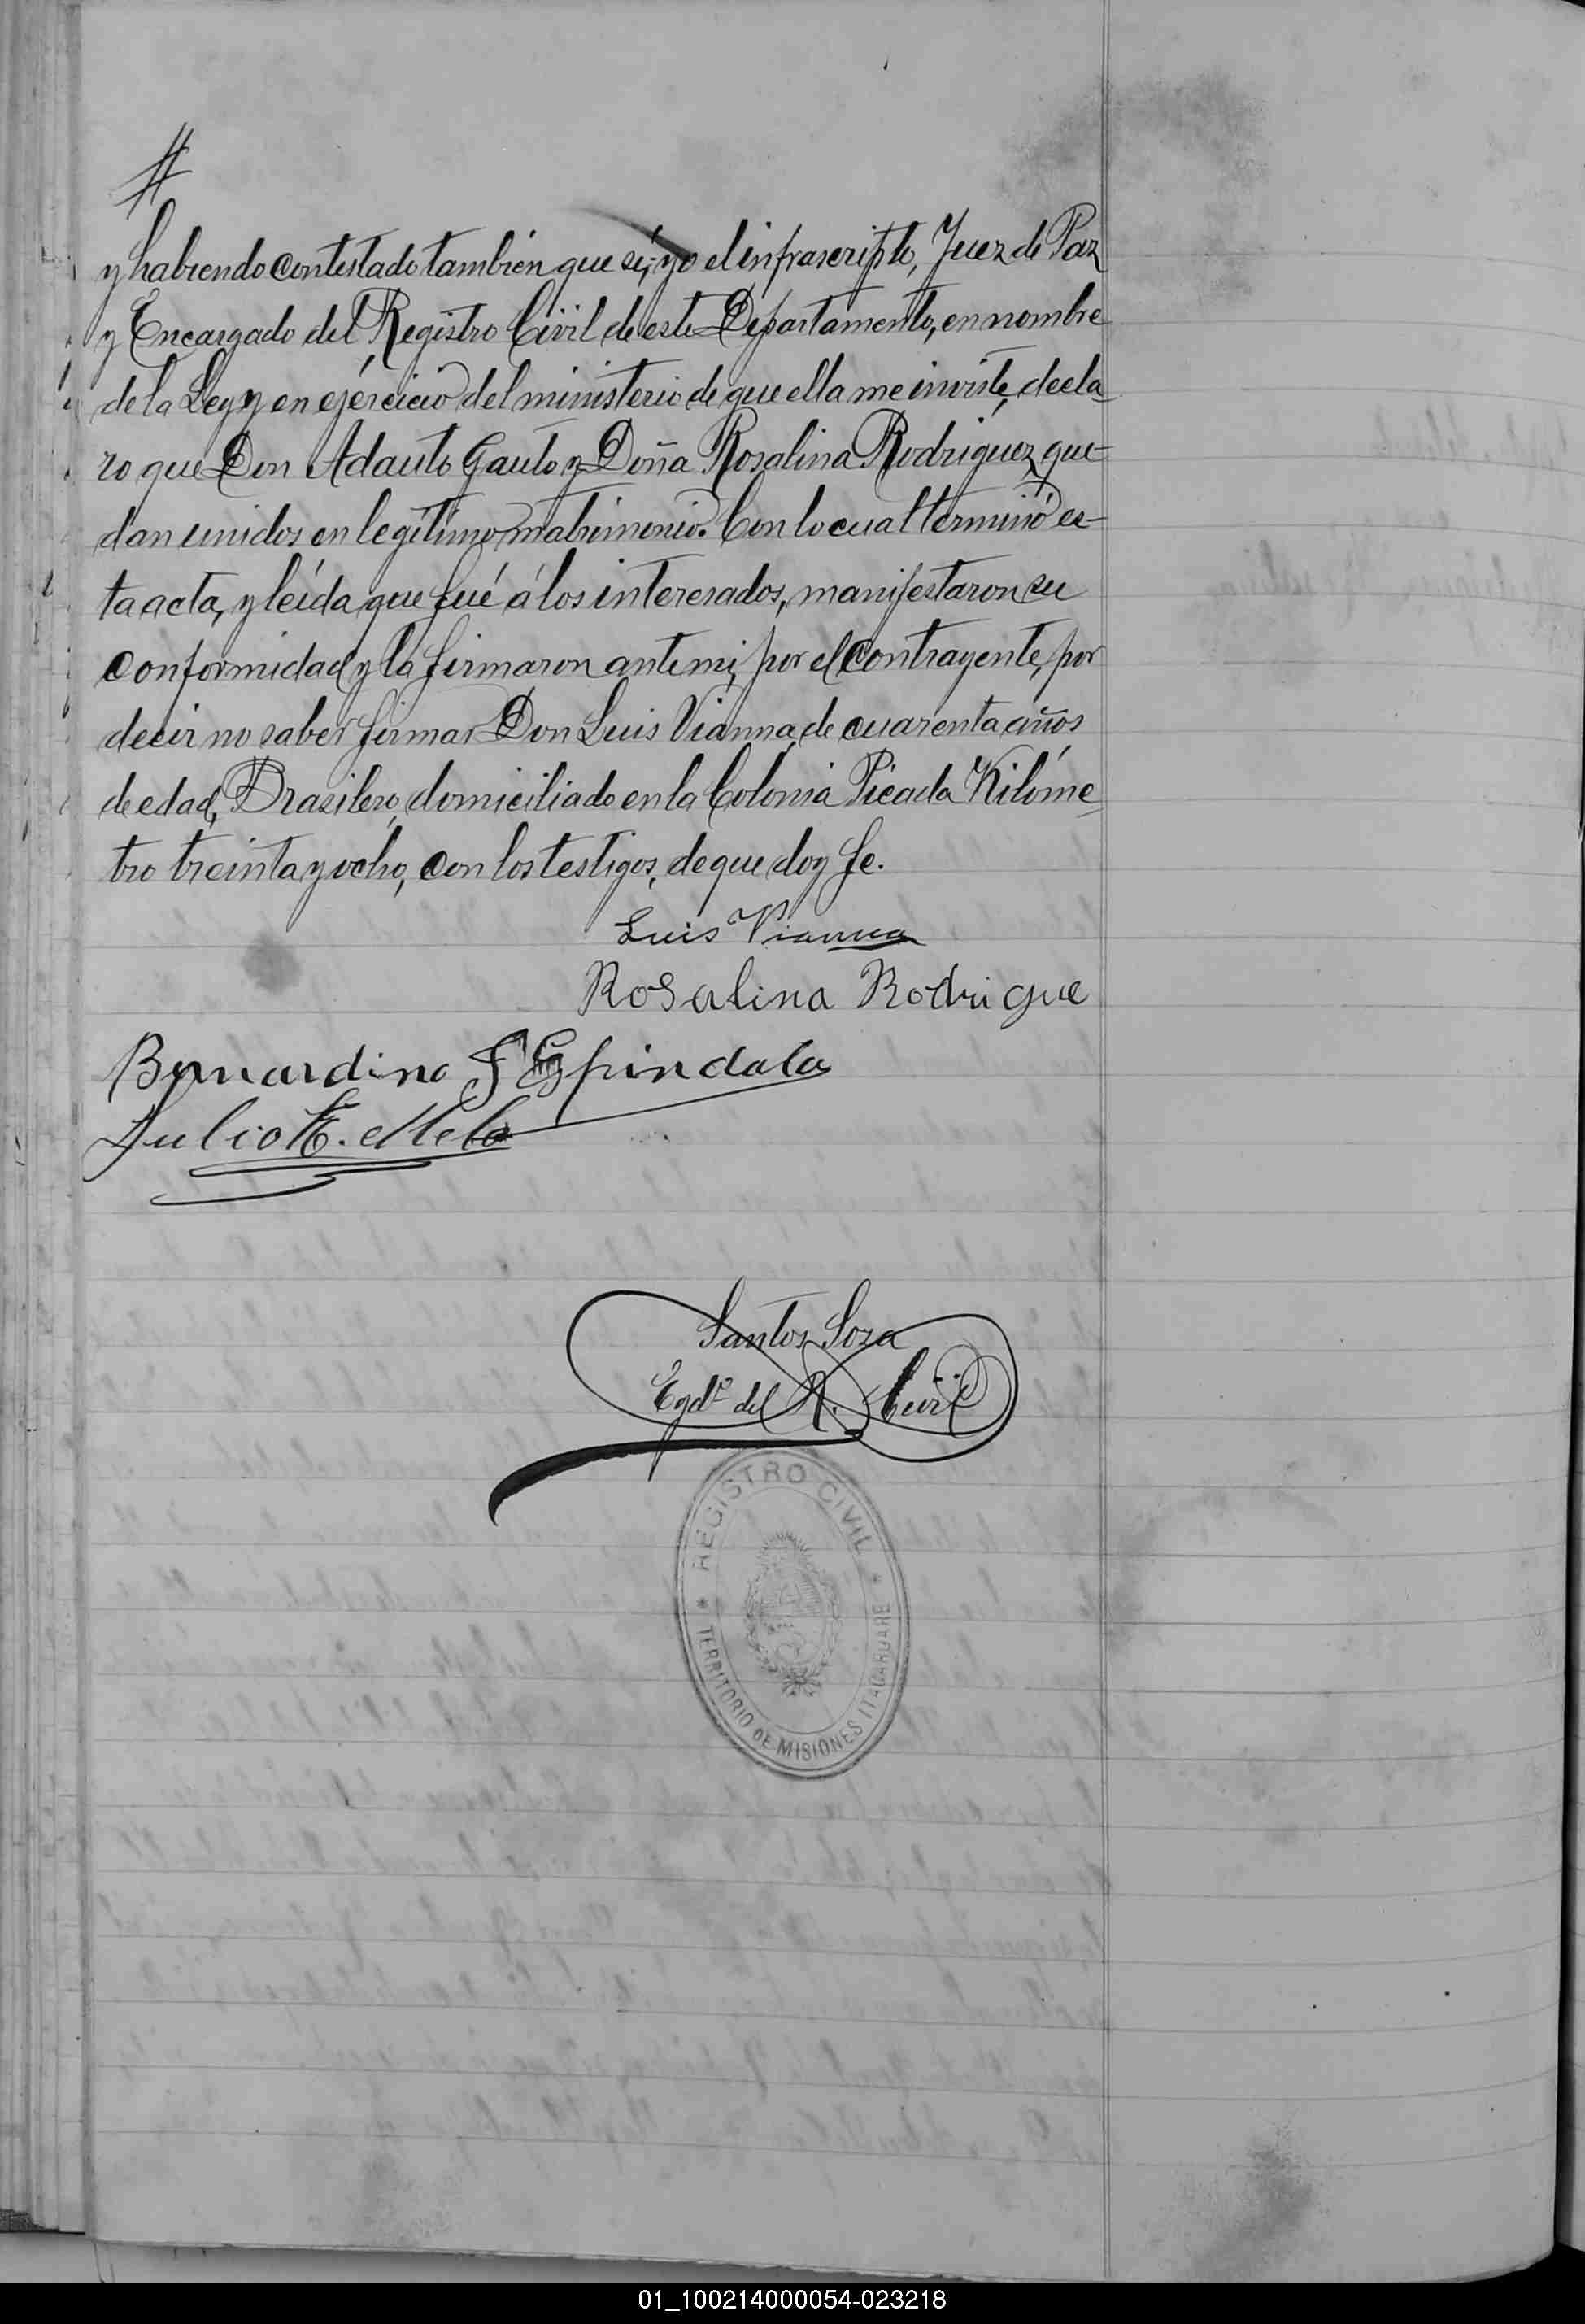 #
y habiendo contestado también que sí; yo el infrascripto, Juez de Paz
y Encargado del Registro Civil de este Departamento, en nombre
de la Ley y en ejércicio del ministerio de que ella me inviste, decla
ro que Don Adauto Gauto y Doña Rosalina Rodriguez, que-
dan unidos en legítimo matrimonio. Con lo cual terminó es-
ta acta, y leída que fué á los interesados, manifestaron su
conformidad y la firmaron ante mi, por el contrayente, por
decir no saber firmar Don Luis Vianna, de cuarenta años
de edad, Brasilero, domiciliado en la Colonia Picada Kilóme
tro treinta y ocho, con los testigos, de que doy fe.
Luis Vianna
Rosalina Rodrigue
Bernardino F Espindola
Julio E. Melo
Santos Sosa
Egdº del R. Civil
REGISTRO CIVIL
TERRITORIO DE MISIONES ITACARUARE
01_100214000054-023218